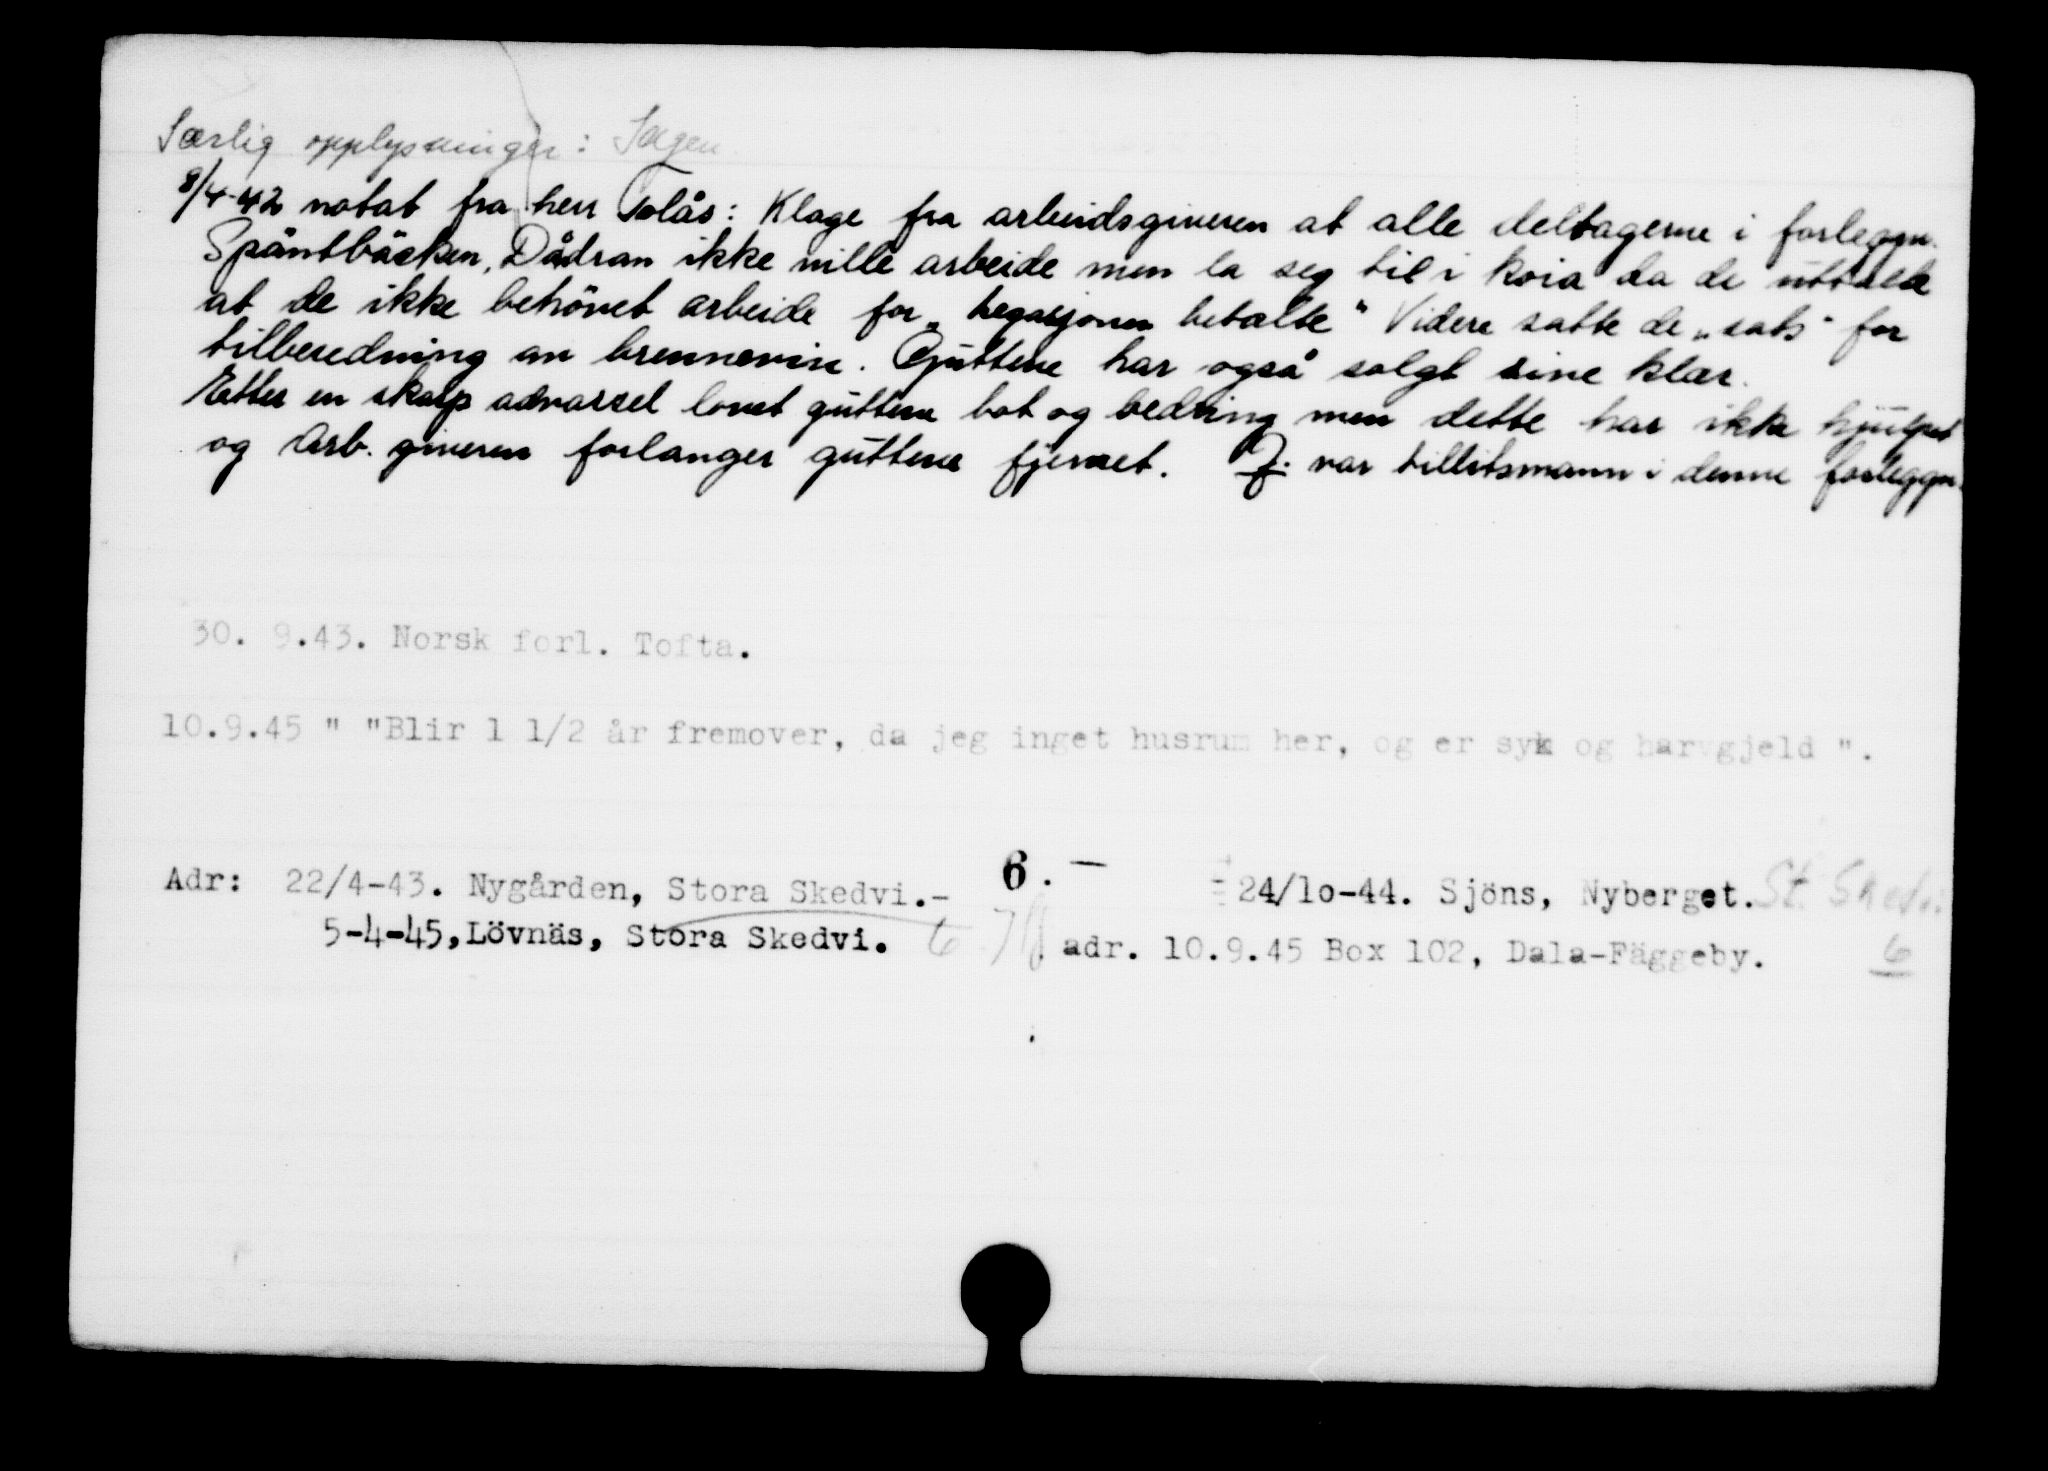 Særlig opplysninger: Ingen
8/4-42 notat fra herr Tolås: Klage fra arbeidsgiveren at alle deltagerne i forleggn.
Späntbäcken, Dådran ikke ville arbeide men la seg til i koia da de uttalte
at de ikke behövet arbeide for „legasjonen betalte" Videre satte de „sats" for
tilberedning av brennevin. Guttene har også solgt sine klær.
Etter en skarp advarsel lovet guttene bot og bedring men dette har ikke hjulpet
og Arb. giveren forlanger guttene fjernet. J. var tillitsmann i denne forleggn.
30. 9.43. Norsk forl. Tofta.
10.9.45 " "Blir 1 1/2 år fremover, da jeg inget husrum her, og er syk og har gjeld ".
Adr: 22/4-43. Nygården, Stora Skedvi.- 6. — 24/10-44. Sjöns, Nyberget. St. Skedvi.
5-4-45, Lövnäs, Stora Skedvi. 6 adr. 10.9.45 Box 102, Dala-Fäggeby. 6